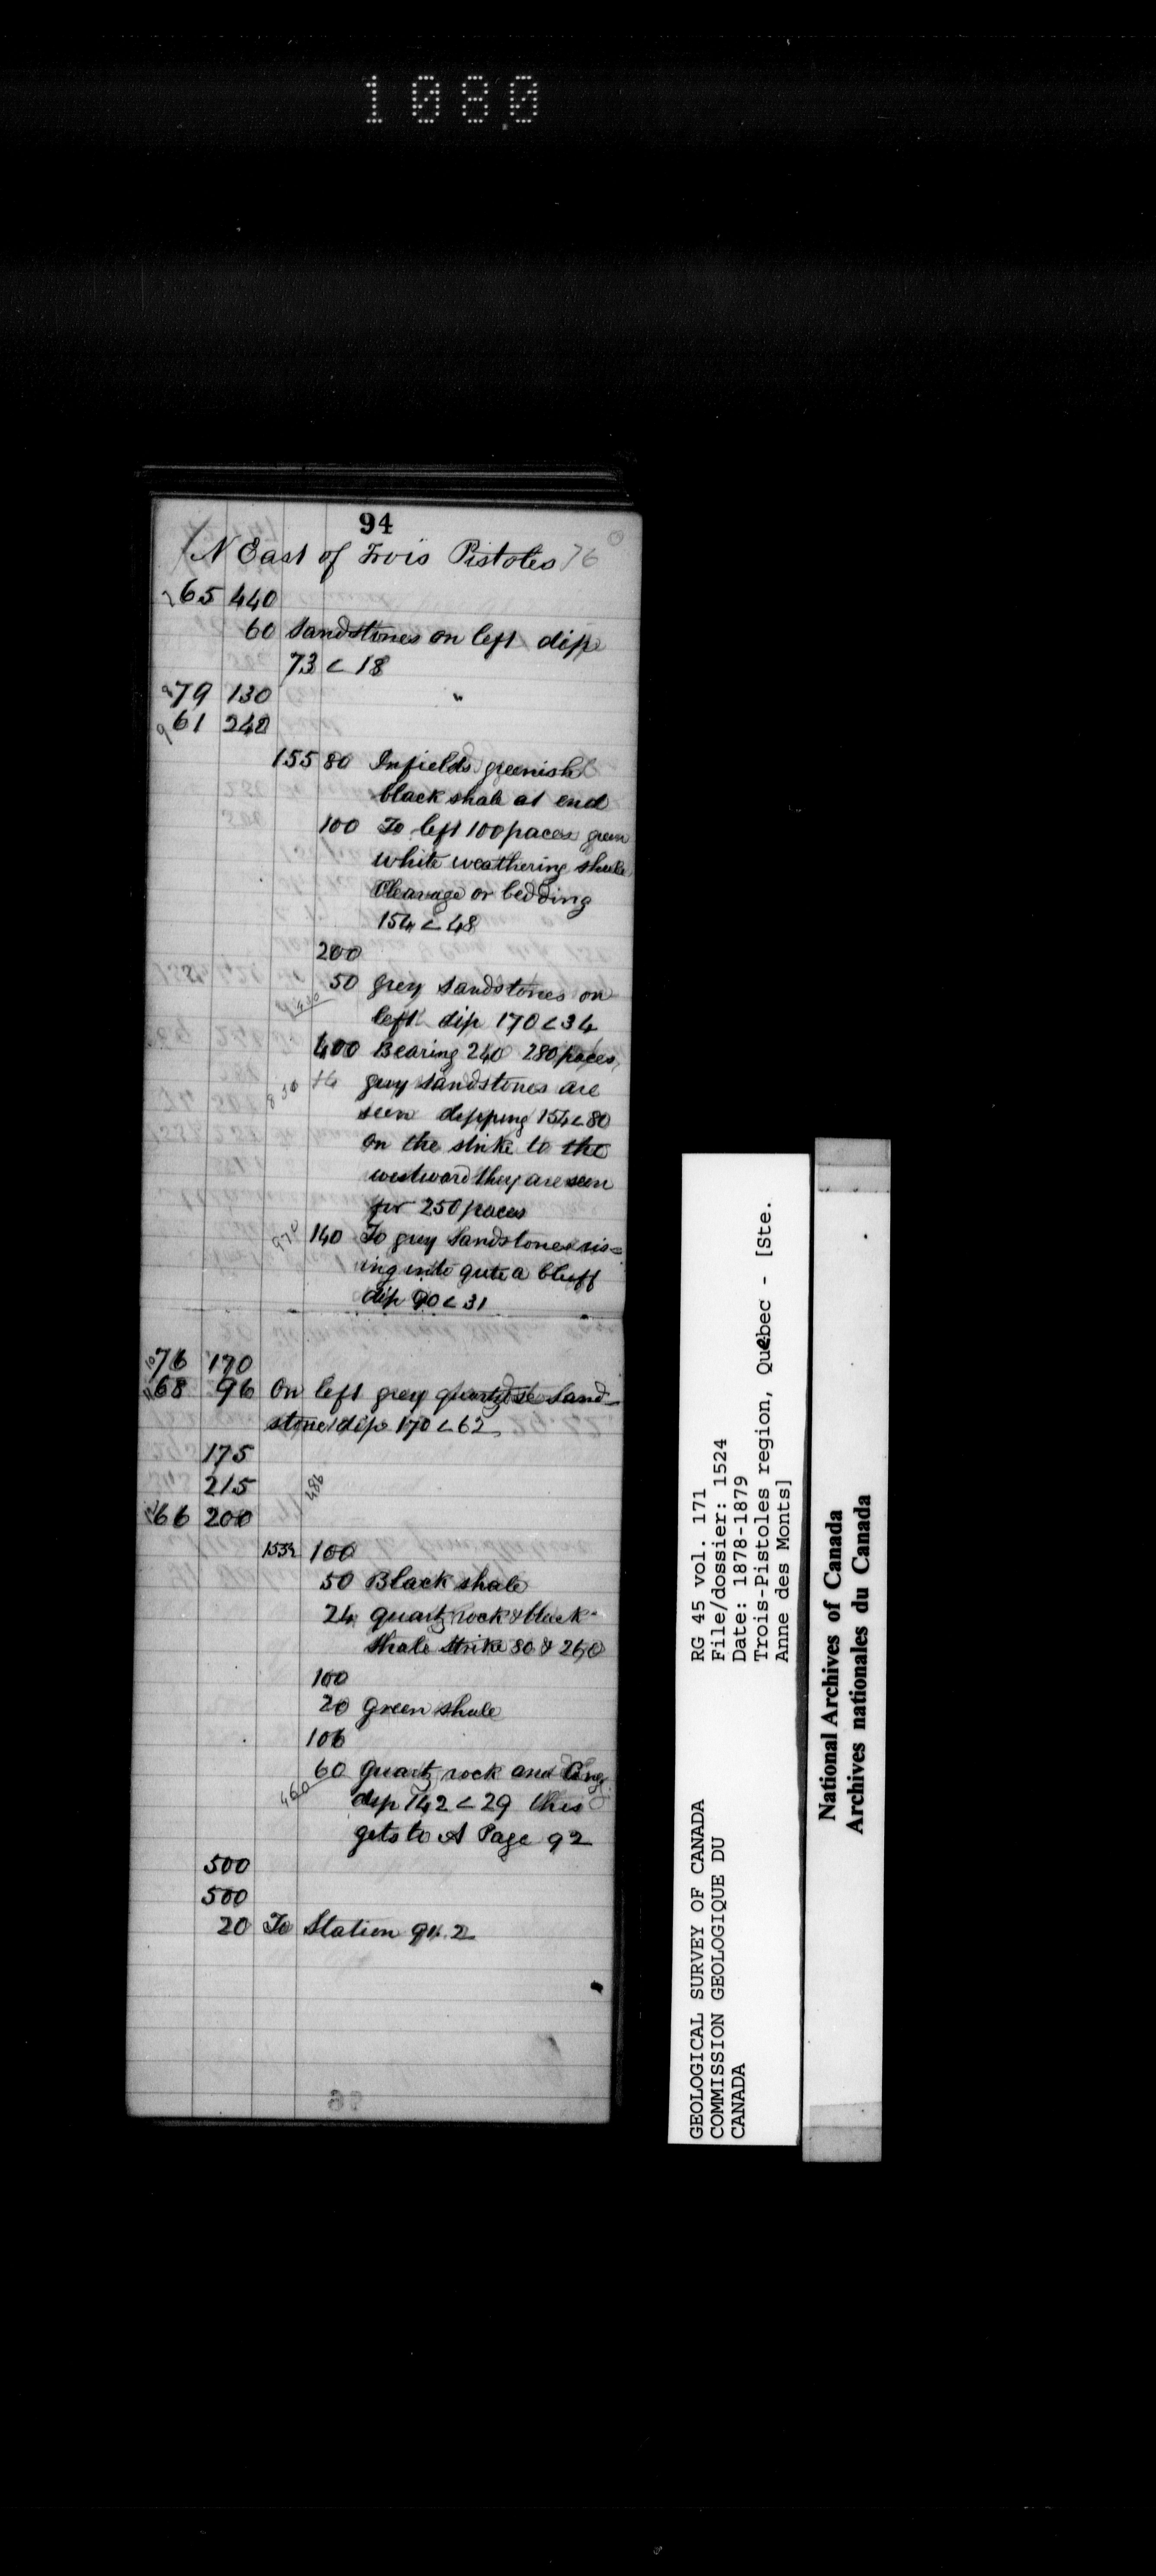 1080
94
N East of Trois Pistoles 76
7 65 440
60 Sandstones on left dip
73 < 18
79 130 "
9 61 242
155 80 In fields greenish
black shale at end
100 To left 100 paces green
white weathering shale
Cleavage or bedding
154 < 48
200
50 grey sandstones on
left dip 170 < 34
400 Bearing 240 280 paces
830 14 grey sandstones are
seen dipping 154 < 80
On the strike to the
westward they are seen
for 250 paces
970 140 To grey sandstones ris=
ing into quite a bluff
dip 90 < 31
10 76 170
11 68 96 On left grey quartzose sand-
stone dip 170 < 62
175
215
486
66 200
153½ 100
50 Black shale
24 quartz rock & black
shale strike 80 & 260
100
20 green shale
106
60 quartz rock and Cong.
460 dip 142 < 29 this
gets to A Page 92
500
500
20 To Station 90.2
GEOLOGICAL SURVEY OF CANADA
COMMISSION GEOLOGIQUE DU
CANADA
RG 45 vol. 171
File/dossier: 1524
Date: 1878-1879
Trois-Pistoles region, Québec - [Ste.
Anne des Monts]
National Archives of Canada
Archives nationales du Canada